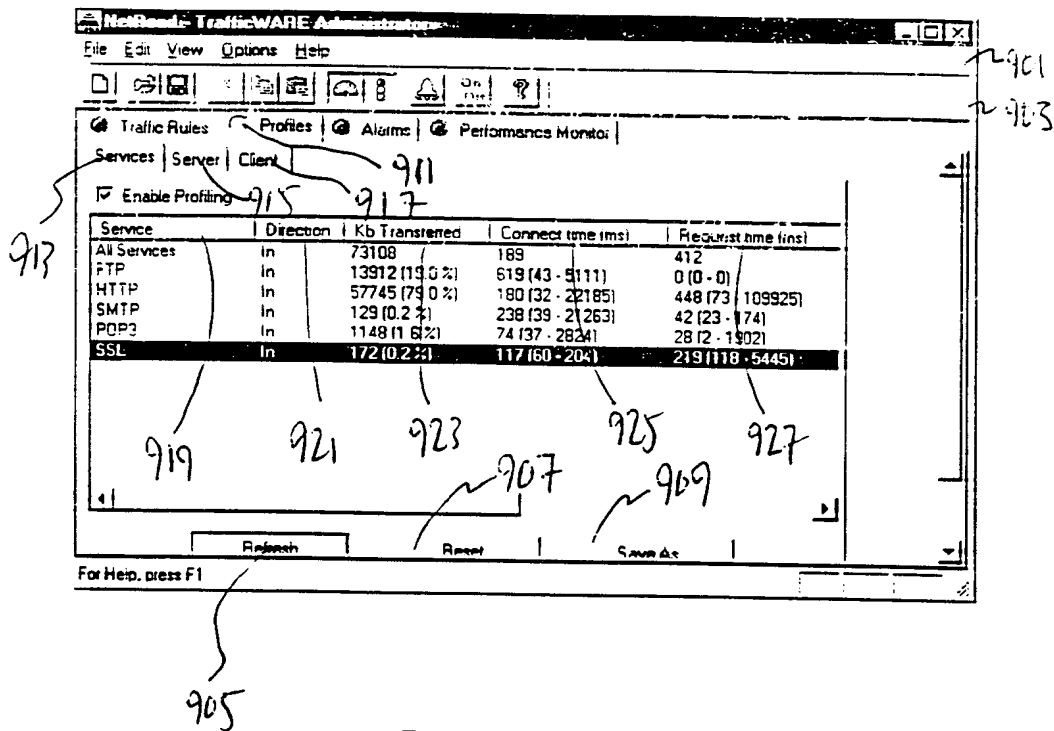 NetReady- TrafficWARE Administrator
File Edit View Options Help
901
903
Traffic Rules Profiles Alarms Performance Monitor
Services Server Client
911
Enable Profiling
915 917
913
Service Direction Kb Transferred Connect time (ms) Request time (ms)
All Services In 73108 189 412
FTP In 13912 (19.0 %) 619 (43 - 5111) 0 (0 - 0)
HTTP In 57745 (79.0 %) 180 (32 - 22185) 448 (73 - 109925)
SMTP In 129 (0.2 %) 238 (39 - 21263) 42 (23 - 174)
POP3 In 1148 (1.6 %) 74 (37 - 2824) 28 (2 - 1902)
SSL In 172 (0.2 %) 117 (60 - 204) 219 (118 - 5445)
919 921 923 925 927
907 909
Refresh Reset Save As
For Help, press F1
905